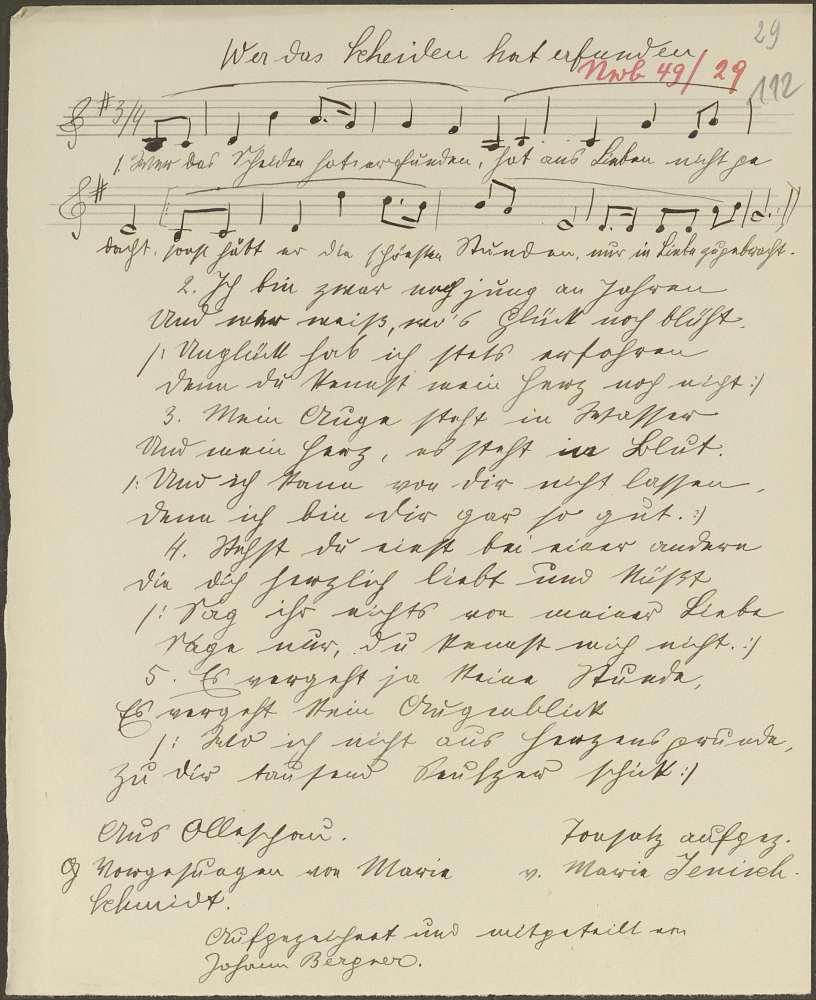 29
Wer das Scheiden hat erfunden
Nrb 49/29
112
3/4
1. Wer das Scheiden hat erfunden, hat ans Lieben nicht ge
dacht, sonst hätt er die schönsten Stunden, nur in Liebe zugebracht.
2. Ich bin zwar noch jung an Jahren
Und wer weiß, wo's Glück noch blüht.
/: Unglück hab ich stets erfahren
denn du kennst mein Herz noch nicht :/
3. Mein Auge steht in Wasser
Und mein Herz, es steht in Blut.
/: Und ich kann von dir nicht lassen,
denn ich bin dir gar so gut. :/
4. Stehst du einst bei einer andern
die dich herzlich liebt und küßt
/: Sag ihr nichts von meiner Liebe
Sage nur, du kennst mich nicht. :/
5. Es vergeht ja keine Stunde,
Es vergeht kein Augenblick
/: Wo ich nicht aus Herzensgrunde,
zu dir tausend Seufzer schick :/
Aus Olleschau.
Tonsatz aufgez.
Vorgesungen von Marie
v. Marie Jenisch.
Schmidt.
Aufgezeichnet und mitgeteilt von
Johann Bergner.